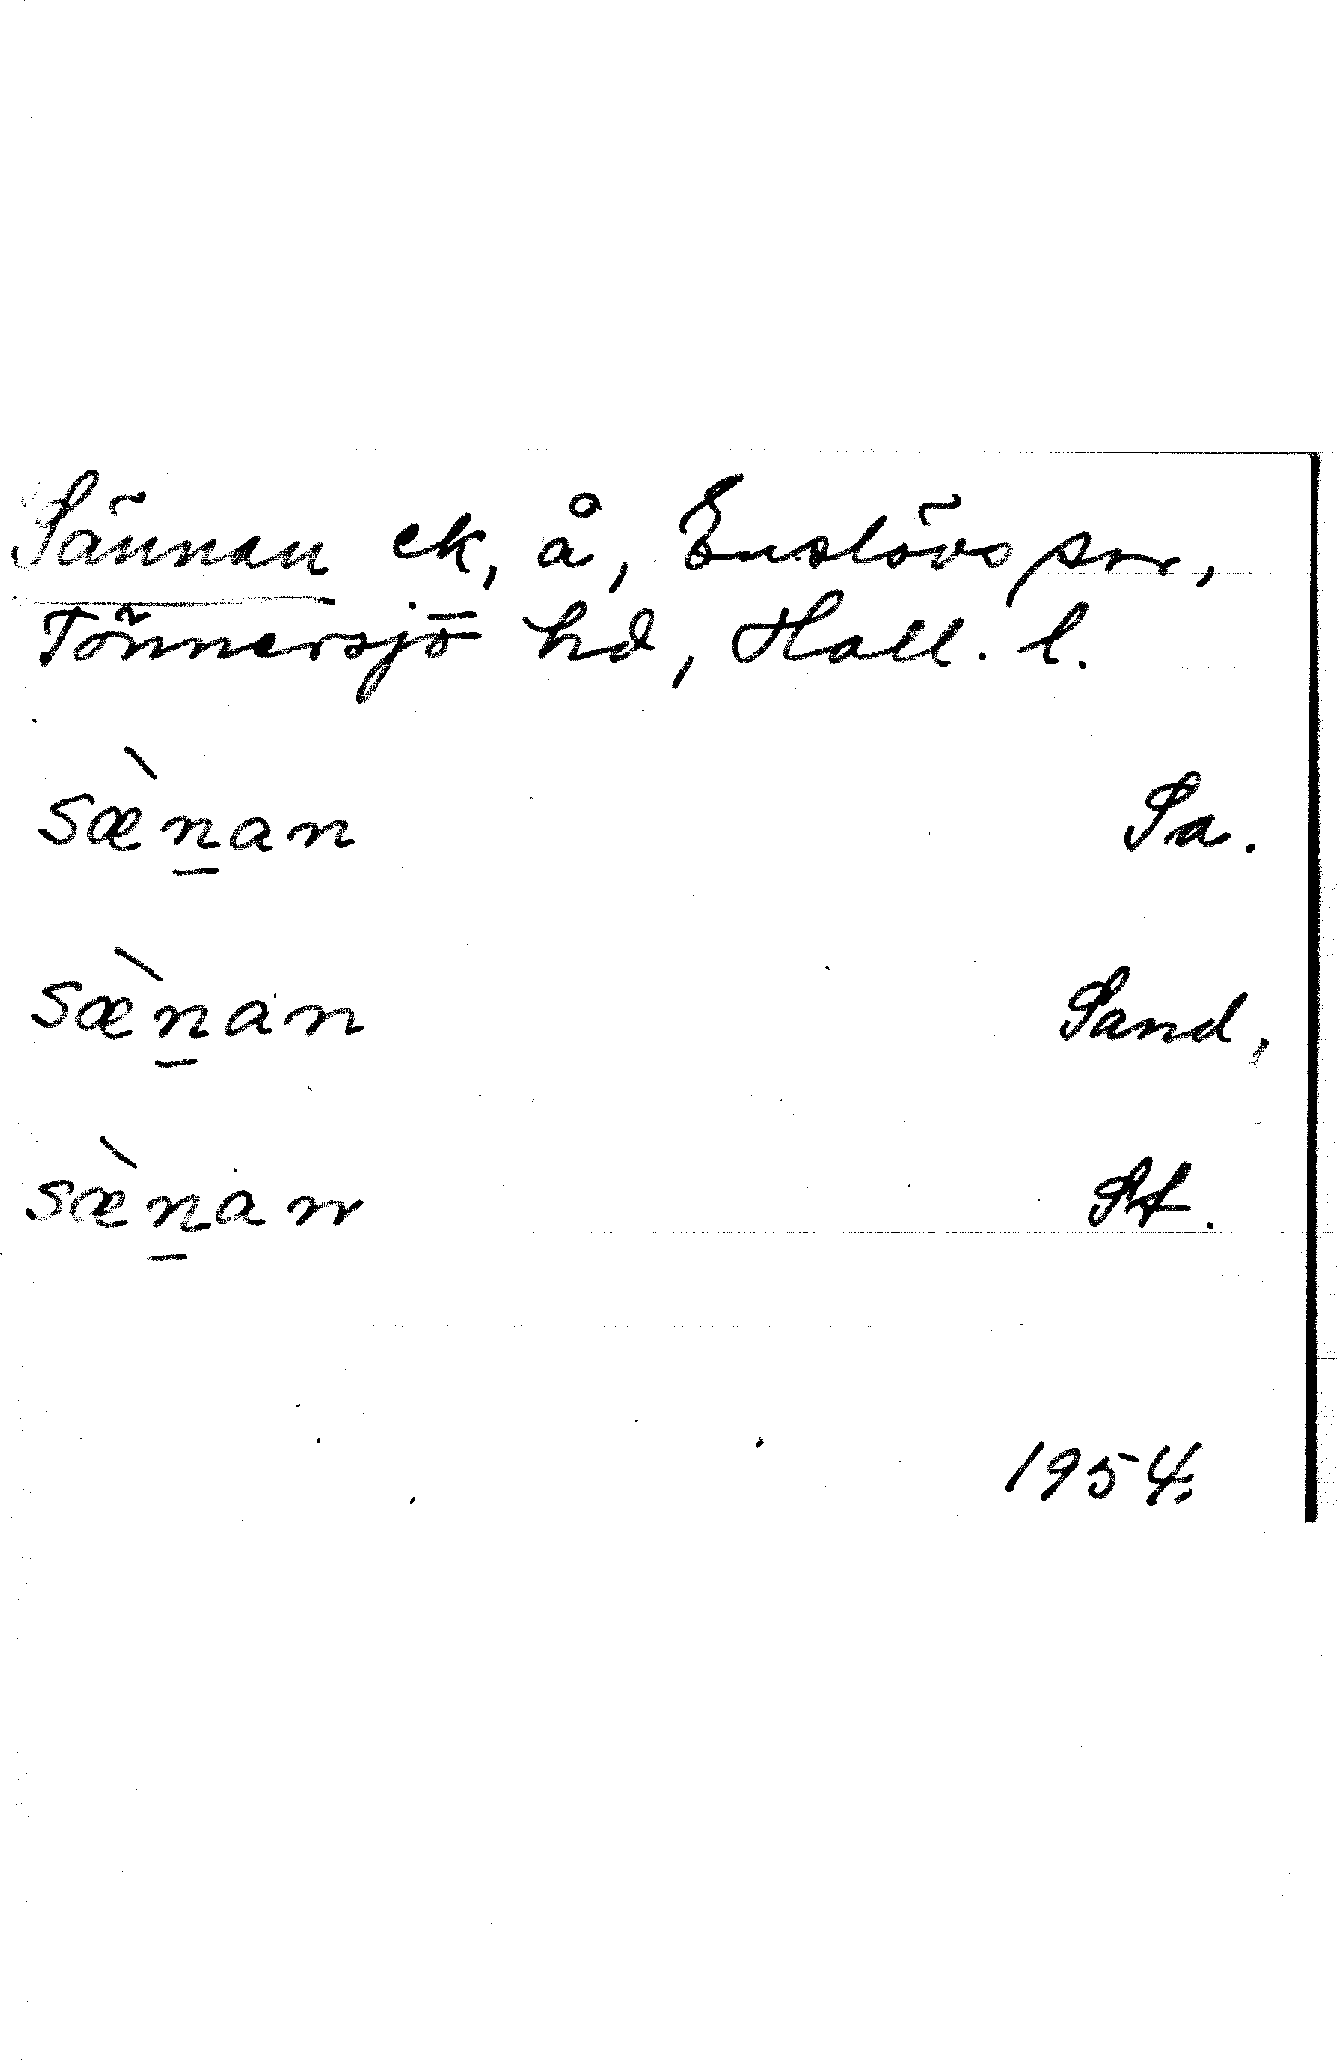 Sännan ek, å, Enslövs sn,
Tönnersjö hd, Hall. l.
sæ̀n̲an Sa.
sæ̀n̲an Sand,
sæ̀n̲an St.
1954.